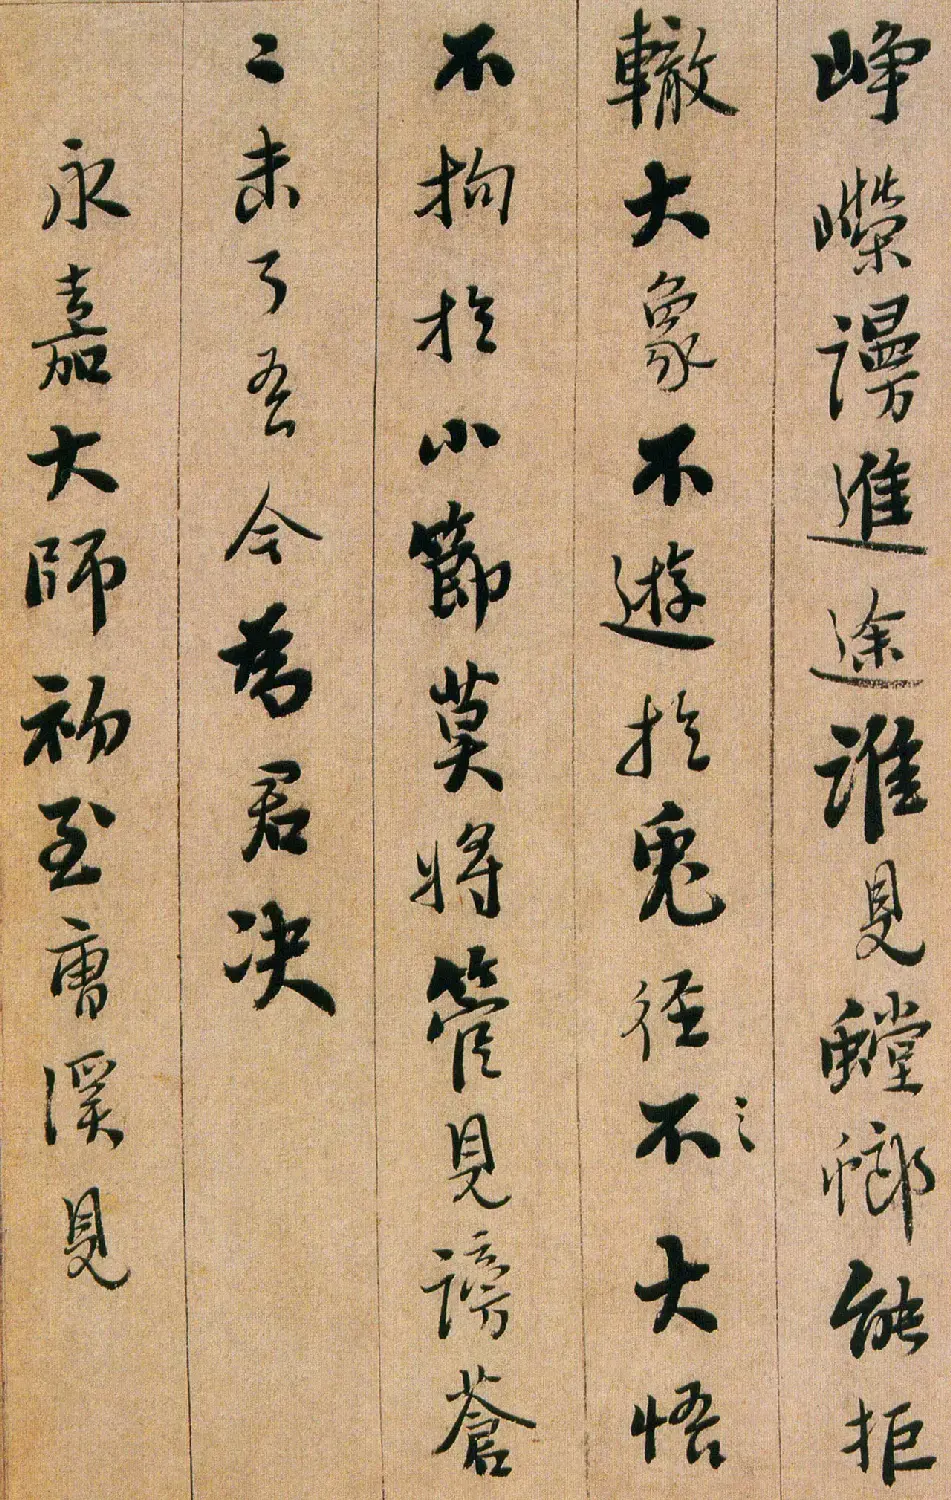 崢嶸謾進途誰見螳螂能拒
轍大象不遊於兎徑不大悟
不拘於小節莫將管見謗蒼
〻未了吾今為君決
永嘉大師初至曹溪見